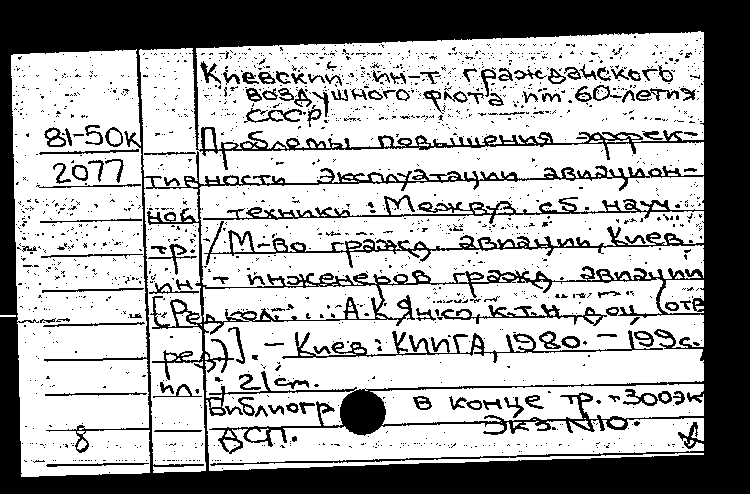 Киевский ин-т гражданского
воздушного флота им. 60-летия
СССР.
81-50к Проблемы повышения эффек-
2077 тивности эксплуатации авиацион-
ной техники : Межвуз. сб. науч.
тр. / М-во гражд. авиации, Киев.
ин-т инженеров гражд. авиации
[Редкол.: ...: А.К. Янко, к.т.н, доц. (отв
ред)]. - Киев : КНИГА, 1980. - 199с.,
ил. ; 21 cm.
Библиогр в конце тр. 300эк
ДСП. Экз. N10.
8